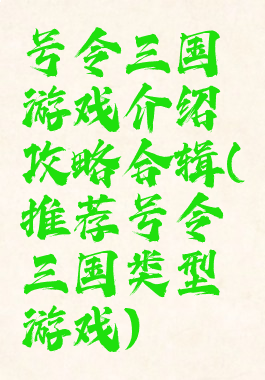 号令三国
游戏介绍
攻略合辑(
推荐号令
三国类型
游戏)